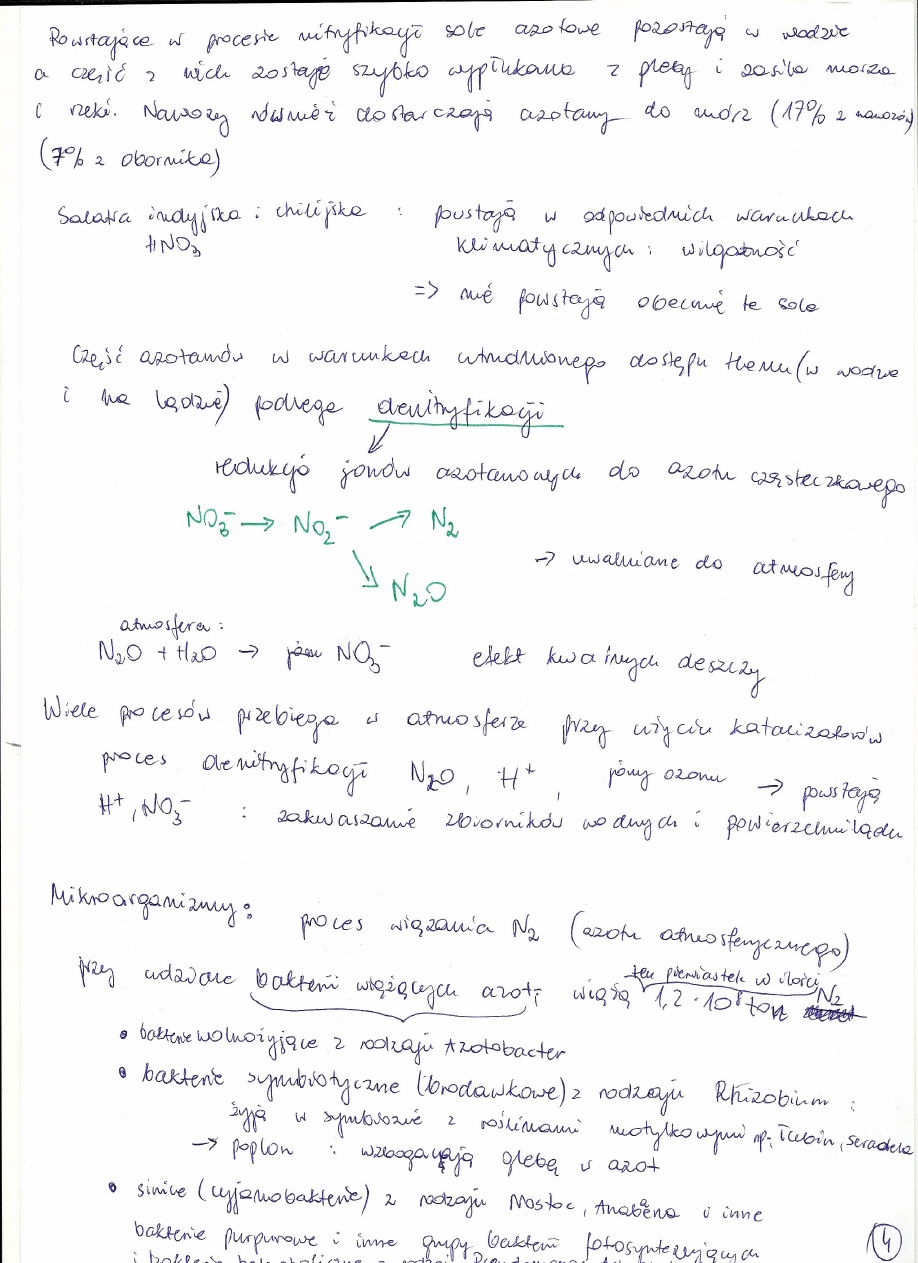 Powstające w procesie nitryfikacji sole azotowe pozostają w wodzie
a część z nich zostaje szybko wypłukana z gleby i zasila morza
i rzeki. Nawozy również dostarczają azotany do mórz (17% z nawozów)
(7% z obornika)
Saletra indyjska i chilijska : powstają w odpowiednich warunkach
HNO₃ klimatycznych : wilgotność
=> nie powstają obecnie te sole
Część azotanów w warunkach utrudnionego dostępu tlenu (w wodzie
i na lądzie) podlega denitryfikacji
redukcja jonów azotanowych do azotu cząsteczkowego
NO₃⁻ → NO₂⁻ → N₂
→ uwalniane do atmosfery
↘ N₂O
atmosfera :
N₂O + H₂O → NO₃⁻ efekt kwaśnych deszczy
Wiele procesów przebiega w atmosferze przy użyciu katalizatorów
proces denitryfikacji N₂O, H⁺, jony ozonu → powstają
H⁺, NO₃⁻ : zakwaszanie zbiorników wodnych i powierzchni lądu
Mikroorganizmy : proces wiązania N₂ (azotu atmosferycznego)
ten pierwiastek w ilości
przy udziale bakterii wiążących azot; wiążą 1,2 · 10⁸ ton N₂
• bakterie wolnożyjące z rodzaju Azotobacter
• bakterie symbiotyczne (brodawkowe) z rodzaju Rhizobium :
żyją w symbiozie z roślinami motylkowymi np. łubin, seradela
→ poplon : wzbogacają glebę w azot
• sinice (cyjanobakterie) z rodzaju Nostoc, Anabena i inne
bakterie purpurowe i inne grupy bakterii fotosyntezujących
4